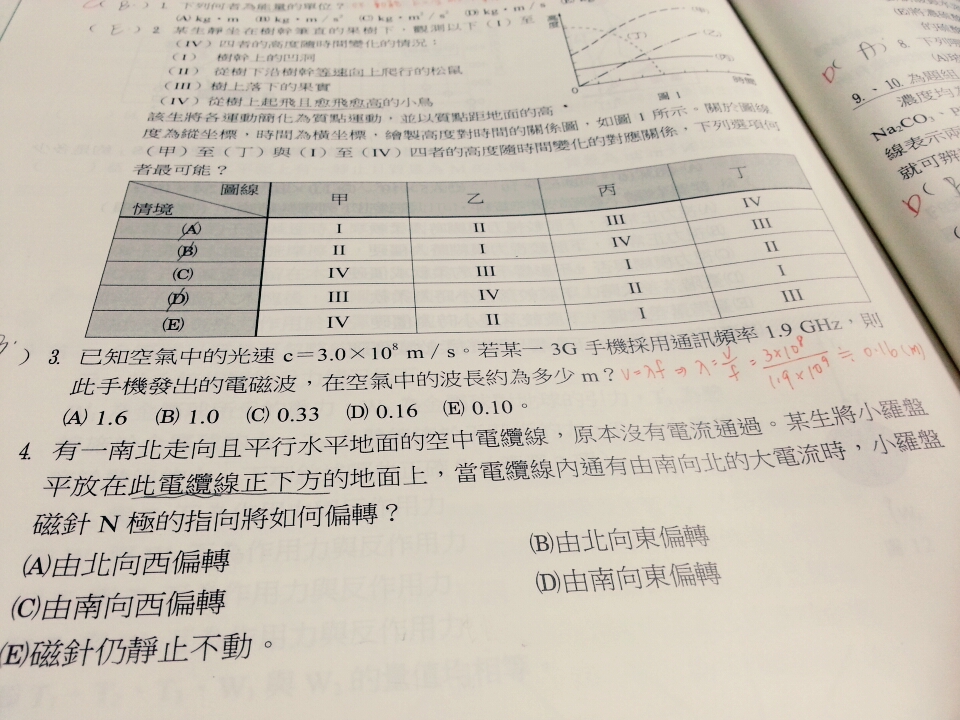 ( B ) 1. 下列何者為能量的單位？
(A) kg・m (B) kg・m / s² (C) kg・m² / s² (D) kg・m / s
( E ) 2. 某生靜坐在樹幹筆直的果樹下，觀測以下 ( I ) 至
(IV) 四者的高度隨時間變化的情況：
( I ) 樹幹上的凹洞
(II) 從樹下沿樹幹等速向上爬行的松鼠
(III) 樹上落下的果實
(IV) 從樹上起飛且愈飛愈高的小鳥
該生將各運動簡化為質點運動，並以質點距地面的高
度為縱坐標，時間為橫坐標，繪製高度對時間的關係圖，如圖 1 所示。關於圖線
(甲) 至 (丁) 與 ( I ) 至 (IV) 四者的高度隨時間變化的對應關係，下列選項何
者最可能？
高度
(丁)
(乙)
(丙)
0
時間
圖 1
圖線
情境 甲 乙 丙 丁
(A) I II III IV
(B) II I IV III
(C) IV III I II
(D) III IV II I
(E) IV II I III
) 3. 已知空氣中的光速 c＝3.0×10⁸ m / s。若某一 3G 手機採用通訊頻率 1.9 GHz，則
此手機發出的電磁波，在空氣中的波長約為多少 m？ v=λf ⇒ λ=v/f=3×10⁸/1.9×10⁹≒0.16(m)
(A) 1.6 (B) 1.0 (C) 0.33 (D) 0.16 (E) 0.10。
4. 有一南北走向且平行水平地面的空中電纜線，原本沒有電流通過。某生將小羅盤
平放在此電纜線正下方的地面上，當電纜線內通有由南向北的大電流時，小羅盤
磁針 N 極的指向將如何偏轉？
(A)由北向西偏轉 (B)由北向東偏轉
(C)由南向西偏轉 (D)由南向東偏轉
(E)磁針仍靜止不動。
D( A ) 8. 下列
9.、10. 為題組
濃度均為
Na₂CO₃、
線表示兩
就可辨
D( B